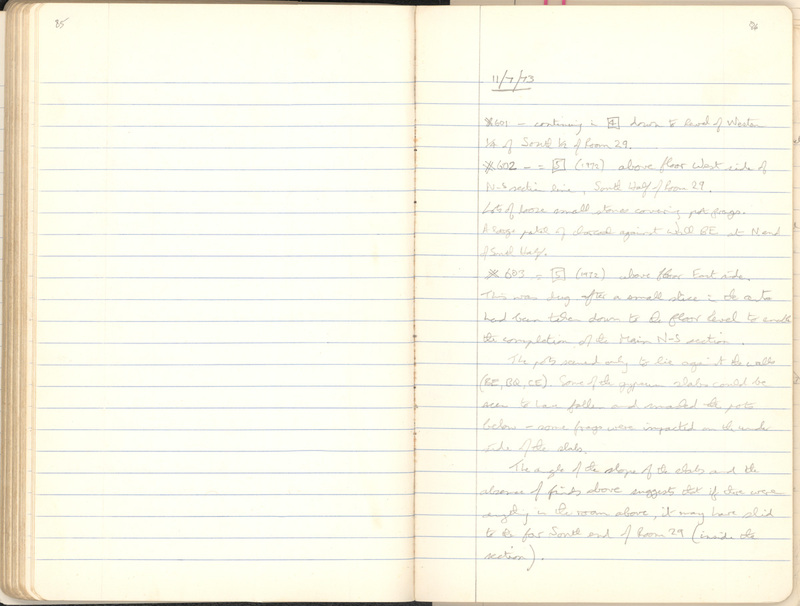 85
86
11/7/73
※601 – continuing in [4] down to level of Western
1/2 of South 1/2 of Room 29.
※602 – = [5] (1972) above floor West side of
N-S section line, South Half of Room 29.
Lots of loose small stones covering pot frags.
A large patch of charcoal against wall BE at N end
of South Half.
※ 603 = [5] (1972) above floor East side.
This was dug after a small slice in the centre
had been taken down to the floor level to enable
the completion of the Main N-S section.
The pots seemed only to lie against the walls
(BE, BQ, CE). Some of the gypsum slabs could be
seen to have fallen and smashed the pots
below – some frags were impacted on the under
side of the slabs.
The angle of the slope of the slabs and the
absence of finds above suggests that if there were
anything in the room above, it may have slid
to the far South end of Room 29 (inside the
section).